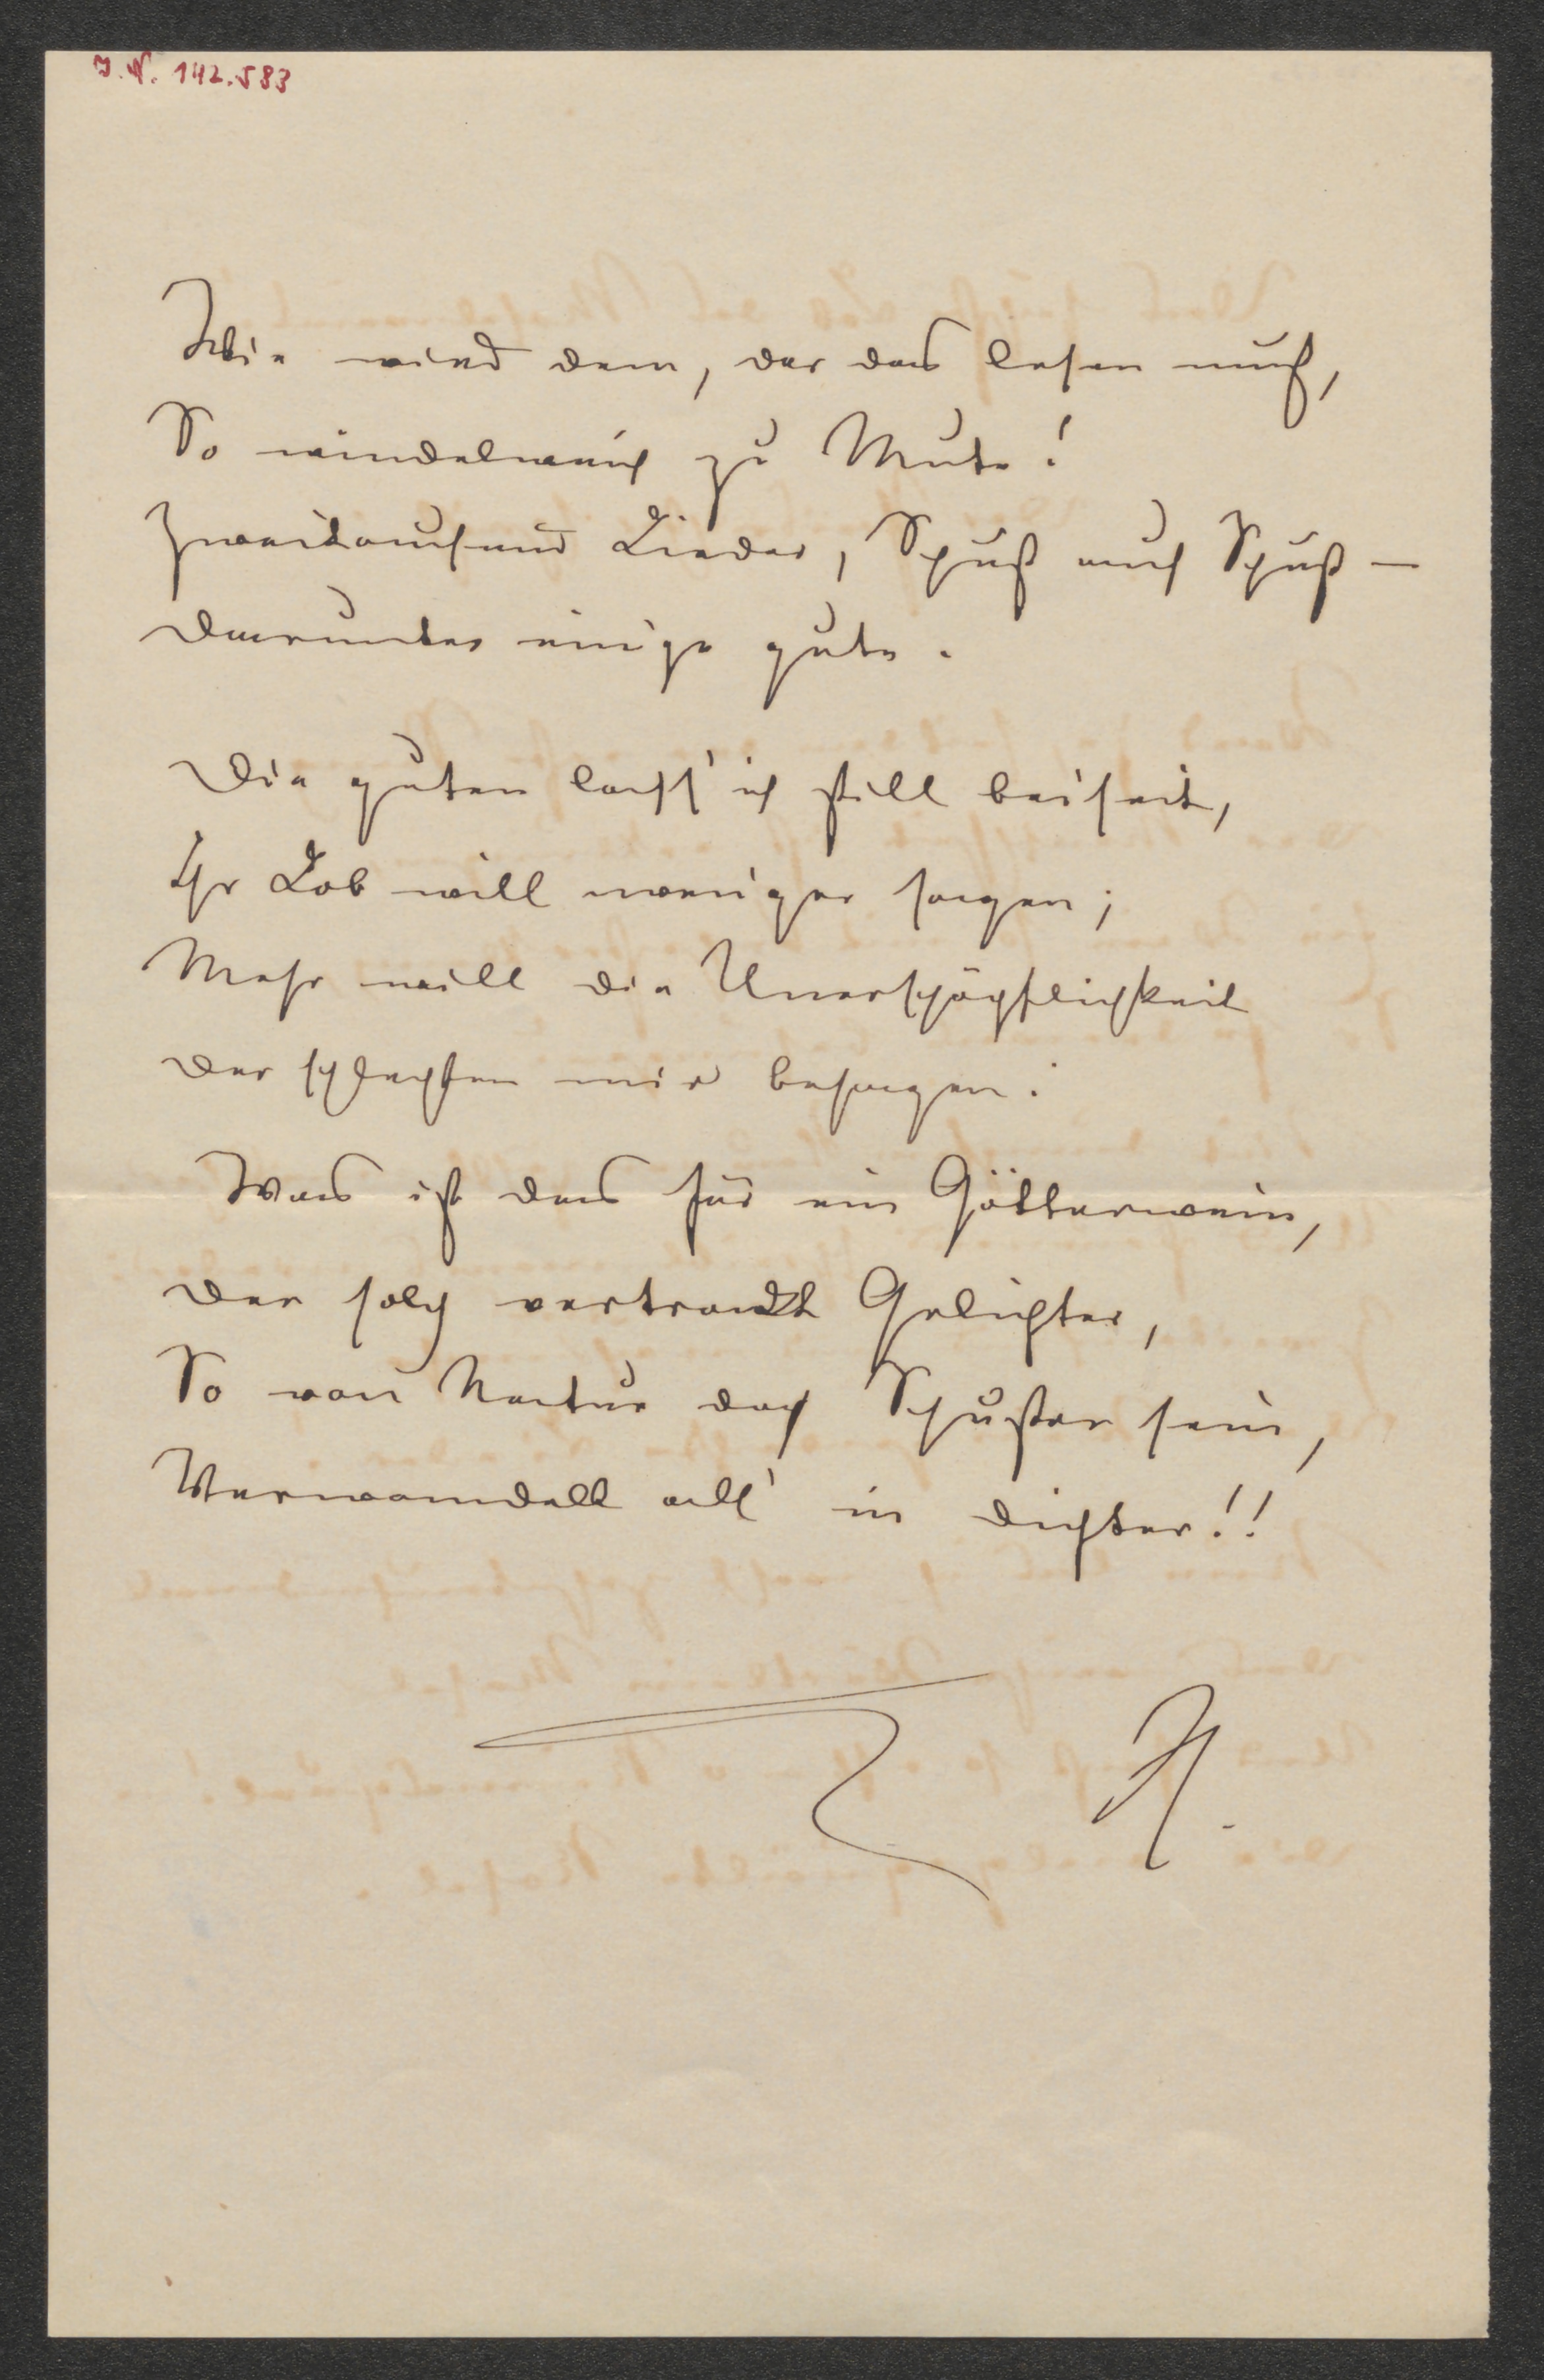 J. N. 142.583
Wie wird dem, der das lesen muß,
So windelweich zu Mute!
Zweitausend Lieder, Schuß auf Schuß —
Darunter einige gute.
Die guten lass' ich still beiseit,
Ihr Lob will weniger sagen;
Mehr will die Unerschöpflichkeit
Der schlechten mir besagen:
Was ist das für ein Götterwein,
Der solch vertrackt Gelichter,
So von Natur doch Schuster sein,
Verwandelt all' in Dichter!!